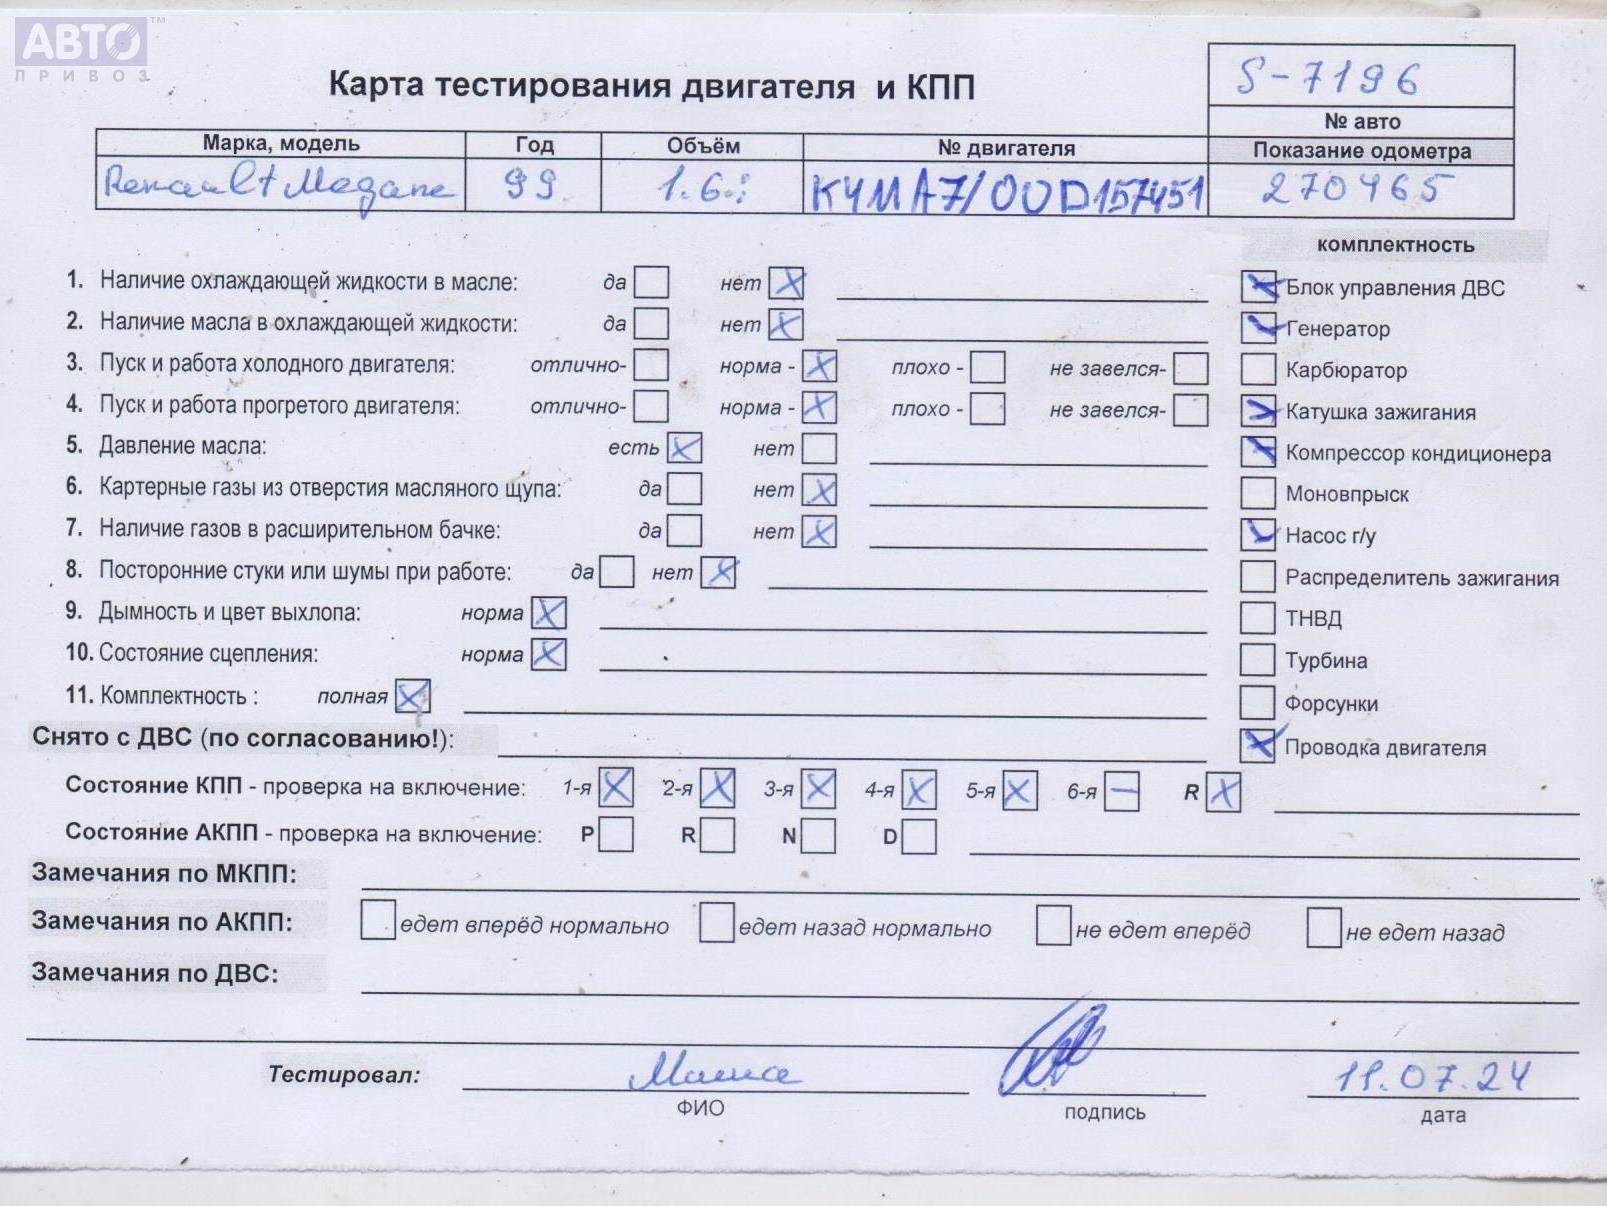 АВТО™
ПРИВОЗ
Карта тестирования двигателя и КПП
S-7196
№ авто
Марка, модель Год Объём № двигателя Показание одометра
Renault Megane 99 1.6i K4MA7/00D157451 270465
комплектность
1. Наличие охлаждающей жидкости в масле: да нет X
2. Наличие масла в охлаждающей жидкости: да нет X
3. Пуск и работа холодного двигателя: отлично- норма - X плохо - не завелся-
4. Пуск и работа прогретого двигателя: отлично- норма - X плохо - не завелся-
5. Давление масла: есть X нет
6. Картерные газы из отверстия масляного щупа: да нет X
7. Наличие газов в расширительном бачке: да нет X
8. Посторонние стуки или шумы при работе: да нет X
9. Дымность и цвет выхлопа: норма X
10. Состояние сцепления: норма X
11. Комплектность : полная X
Блок управления ДВС
Генератор
Карбюратор
Катушка зажигания
Компрессор кондиционера
Моновпрыск
Насос г/у
Распределитель зажигания
ТНВД
Турбина
Форсунки
Проводка двигателя
Снято с ДВС (по согласованию!):
Состояние КПП - проверка на включение: 1-я X 2-я X 3-я X 4-я X 5-я X 6-я — R X
Состояние АКПП - проверка на включение: P R N D
Замечания по МКПП:
Замечания по АКПП: едет вперёд нормально едет назад нормально не едет вперёд не едет назад
Замечания по ДВС:
Тестировал: 11.07.24
ФИО подпись дата